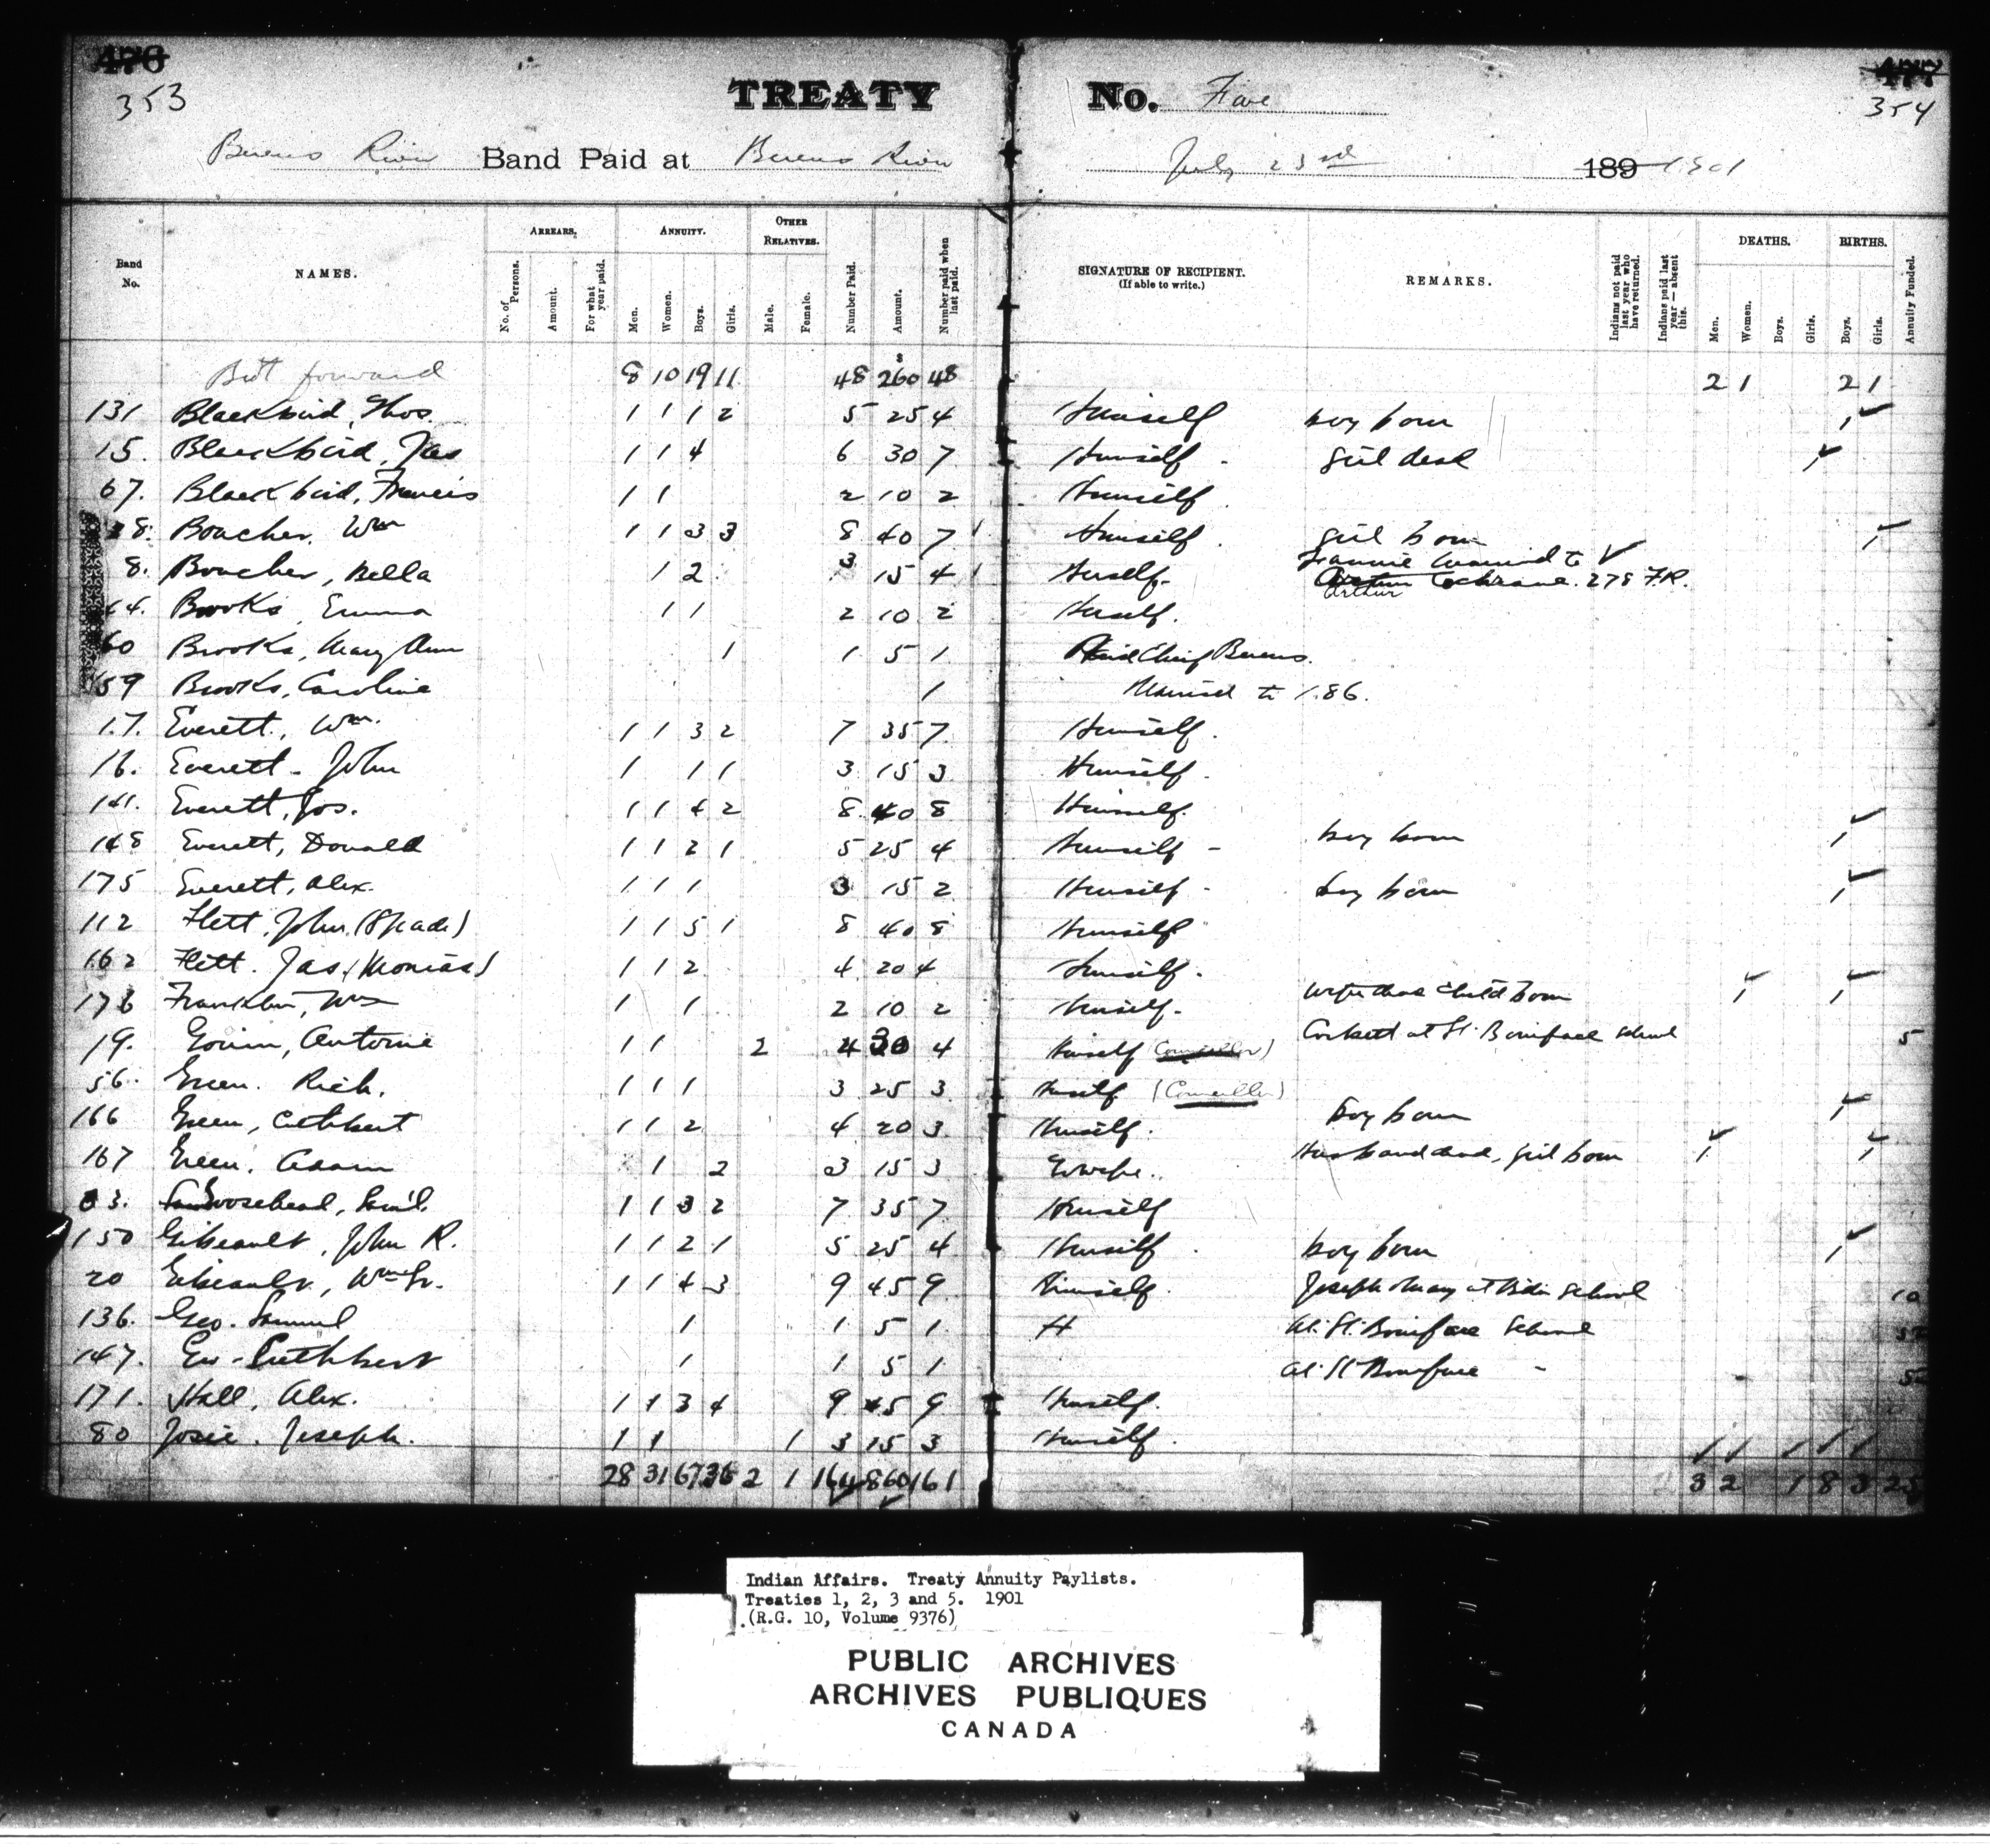 476 477
353 354
TREATY No. Five
Berens River Band Paid at Berens River July 23rd 189 1901
Band No. NAMES. ARREARS. No. of Persons. Amount. For what year paid. ANNUITY. Men. Women. Boys. Girls. OTHER RELATIVES. Male. Female. Number Paid. Amount. Number paid when last paid. SIGNATURE OF RECIPIENT. (If able to write.) REMARKS. Indians not paid last year who have returned. Indians paid last year — absent this. DEATHS. Men. Women. Boys. Girls. BIRTHS. Boys. Girls. Annuity Funded.
Brt forward 8 10 19 11 48 $260 48 2 1 2 1
131 Blackbird, Thos. 1 1 1 2 5 25 4 Himself boy born 1
15. Blackbird, Jas 1 1 4 6 30 7 Himself girl dead 1
67. Blackbird, Francis 1 1 2 10 2 Himself
8. Boucher, Wm 1 1 3 3 8 40 7 1 Himself girl born 1
8. Boucher, Bella 1 2 3 15 4 1 Herself Married to Arthur Cochrane. 278 F.R.
44. Brooks, Emma 1 1 2 10 2 Herself.
60 Brooks, Mary Ann 1 1 5 1 Paid Chief Berens.
159 Brooks, Caroline 1 Married to 186.
17. Everett, Wm. 1 1 3 2 7 35 7 Himself.
16. Everett, John 1 1 1 3 15 3 Himself.
141. Everett, Jos. 1 1 4 2 8 40 8 Himself.
148 Everett, Donald 1 1 2 1 5 25 4 Himself boy born 1
175 Everett, Alex. 1 1 1 3 15 2 Himself boy born 1
112 Flett, John (Spade) 1 1 5 1 8 40 8 Himself
162 Flett. Jas. (Monias) 1 1 2 4 20 4 Himself.
176 Franklin, Wm 1 1 2 10 2 Himself. wife dead child born 1 1
19. Gouin, Antoine 1 1 2 4 30 4 Himself (Councillor) at St. Boniface School 5
56. Green. Rich. 1 1 1 3 25 3 Himself (Councillor)
166 Green, Cuthbert 1 1 2 4 20 3 Himself. boy born 1
167 Green. Adam 1 2 3 15 3 To wife. Husband dead, girl born 1 1
3. Goosehead, Sam'l. 1 1 3 2 7 35 7 Himself
150 Gibeault, John R. 1 1 2 1 5 25 4 Himself. boy born 1
20 Gibeault, Wm Sr. 1 1 4 3 9 45 9 Himself. Joseph & Mary at Indn School 10
136. Geo. Samuel 1 1 5 1 H At St. Boniface School 5
147. Geo. Cuthbert 1 1 5 1 at St Boniface - 5
171. Hall, Alex. 1 1 3 4 9 45 9 Himself.
80 Josie. Joseph. 1 1 1 3 15 3 Himself.
28 31 67 36 2 1 164 860 161 3 2 1 8 3 25
Indian Affairs. Treaty Annuity Paylists.
Treaties 1, 2, 3 and 5. 1901
(R.G. 10, Volume 9376)
PUBLIC ARCHIVES
ARCHIVES PUBLIQUES
CANADA